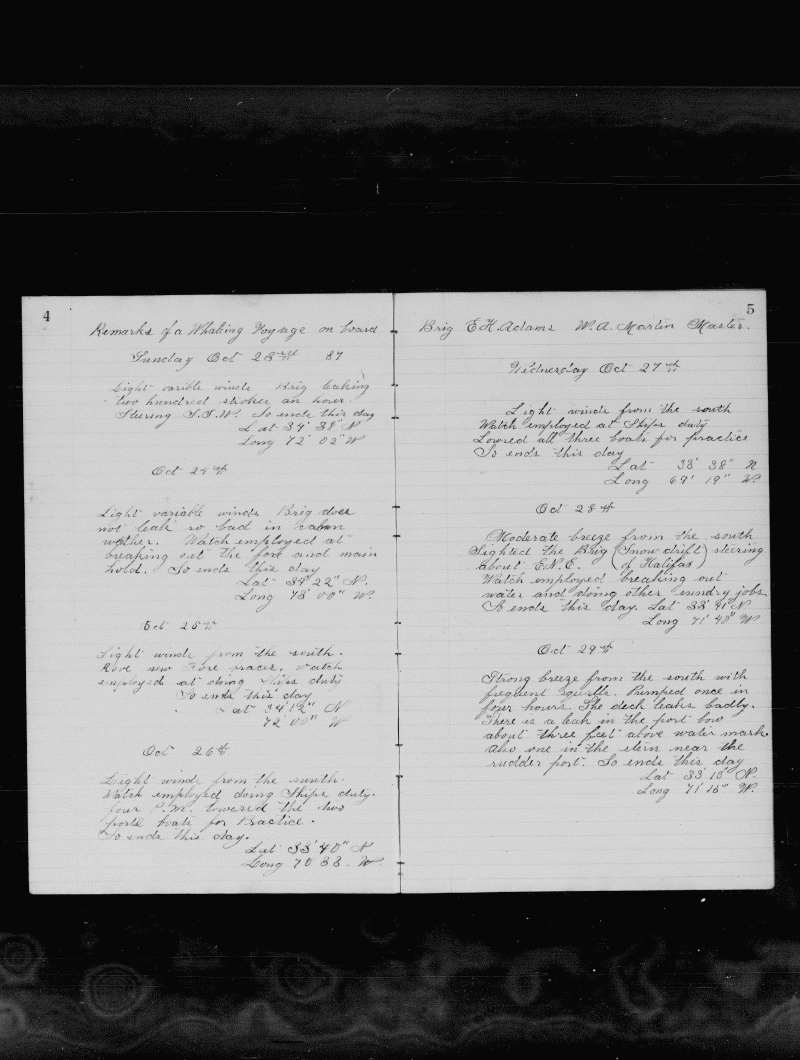 4
Remarks of a Whaling Voyage on board
Sunday Oct 23rd 87
Light varible winds Brig leaking
two hundred strokes an hour.
Steering S.S.W. So ends this day
Lat 34° 38" N
Long 72° 02" W
Oct 24th
Light variable winds Brig does
not leak so bad in calm
wether. Watch employed at
breaking out the fore and main
hold. So ends this day
Lat 34° 22" N.
Long 73' 00" W.
Oct 25th
Light winds from the south.
Rove new Fore braces. Watch
employed at doing Ships duty
So ends this day
Lat 34' 12" N
72° 00" W
Oct 26th
Light winds from the south.
Watch employed doing Ships duty.
four P.M. lowered the two
port boats for Practice.
So ends this day.
Lat 33' 40" N
Long 70 38 W
5
Brig E.H. Adams W.A. Martin Master.
Wednesday Oct 27th
Light winds from the south
Watch employed at Ships duty
Lowred all three boats for practice
So ends this day
Lat 33' 38" N
Long 69' 19" W.
Oct 28th
Moderate breeze from the south
Sighted the Brig (Snow drift) steering
about E.N.E. (of Halifax)
Watch employed breaking out
water and doing other sundry jobs
So ends this day. Lat 33' 41" N
Long 71' 40" W
Oct 29th
Strong breeze from the south with
frequent squalls. Pumped once in
four hours. The deck leaks badly.
There is a leak in the port bow
about three feet above water mark
also one in the stern near the
rudder port. So ends this day
Lat 33' 13" N.
Long 71' 16" W.